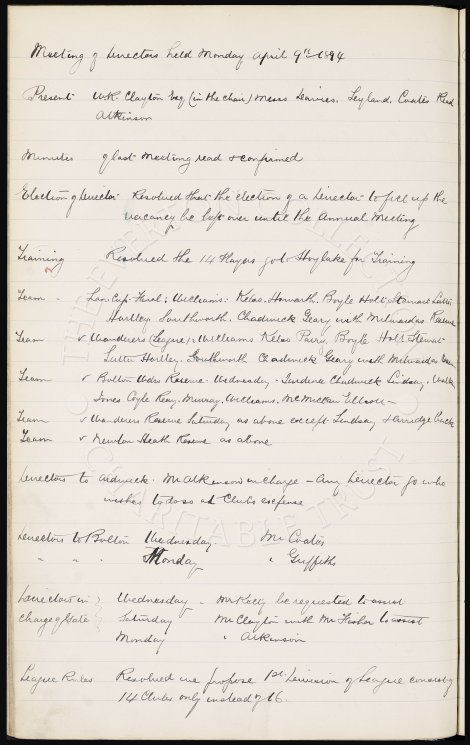 Meeting of Directors held Monday April 9th 1894
Present W.R. Clayton Esq (in the chair) Messrs Davies, Leyland, Coates Reid
Atkinson
Minutes of last Meeting read & confirmed
Election of Director Resolved that the Election of a Director to fill up the
vacancy be left over until the Annual Meeting
Training Resolved the 14 Players go to Hoylake for Training
Team - Lan. Cup. Final: Williams. Kelso. Howarth. Boyle Holt Stewart Latta
Hartley Southworth. Chadwick Geary with Milward as Reserve
Team v Wanderers (League): Williams Kelso Parry, Boyle Holt Stewart
Latta Hartley. Southworth Chadwick Geary with Milward as
Team v Bolton Wdrs Reserve - Wednesday - Chadwick Lindsay.
Jones Coyle Reay. Murray. Williams. McMillan Elliott -
Team v Wanderers Reserve Saturday as above except Lindsay & Arridge back
Team v Newton Heath Reserve as above
Directors to Ardwick. Mr Atkinson in charge - Any Director go who
wishes to do so at Clubs expense
Directors to Bolton Wednesday Mr Coates
" " " Monday " Griffiths
Directors in } Wednesday - Mr Kelly be requested to assist
charge of Gate } Saturday Mr Clayton with Mr Fisher to assist
Monday " Atkinson
League Rules Resolved we propose 1st Division of League consist of
14 Clubs only instead of 16.
CHARITABLE TRUST